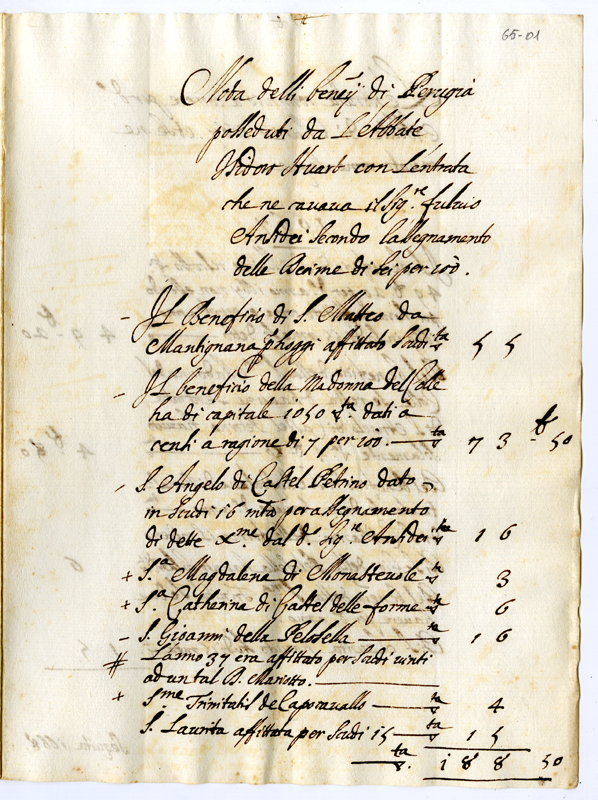 65-01
Nota delli beneij di Perugia
posseduti da L'Abbate
Isidoro Stuart con L'entrata
che ne cavava il Sig.re fulvio
Ansidei secondo l'assegnamento
delle Decime di sei per 100.
- Il Beneficio di S. Matteo da
Mantignana p hoggi affittato scudi ta 55
- Il beneficio della Madonna del Colle
ha di capitale 1050 ta dati à
censi a ragione di 7 per 100. — ta 73 - 50
- S. Angelo di Castel Petrino dato
in scudi 16 mta per assegnamento
di dette Xme. dal d.o Sig.re Ansidei ta 16
+ S.a Magdalena di Monastevole ta 3
+ S.a Catharina di Castel delle forme ta 6
- S. Gioanni della Pelosella — ta 16
# L'anno 37 era affittato per scudi vinti
ad un tal B. Mariotto.
+ S.me Trinitatis de Caporavallo — ta 4
S. Laurita affittata per scudi 15 — ta 15
— ta. 188 50